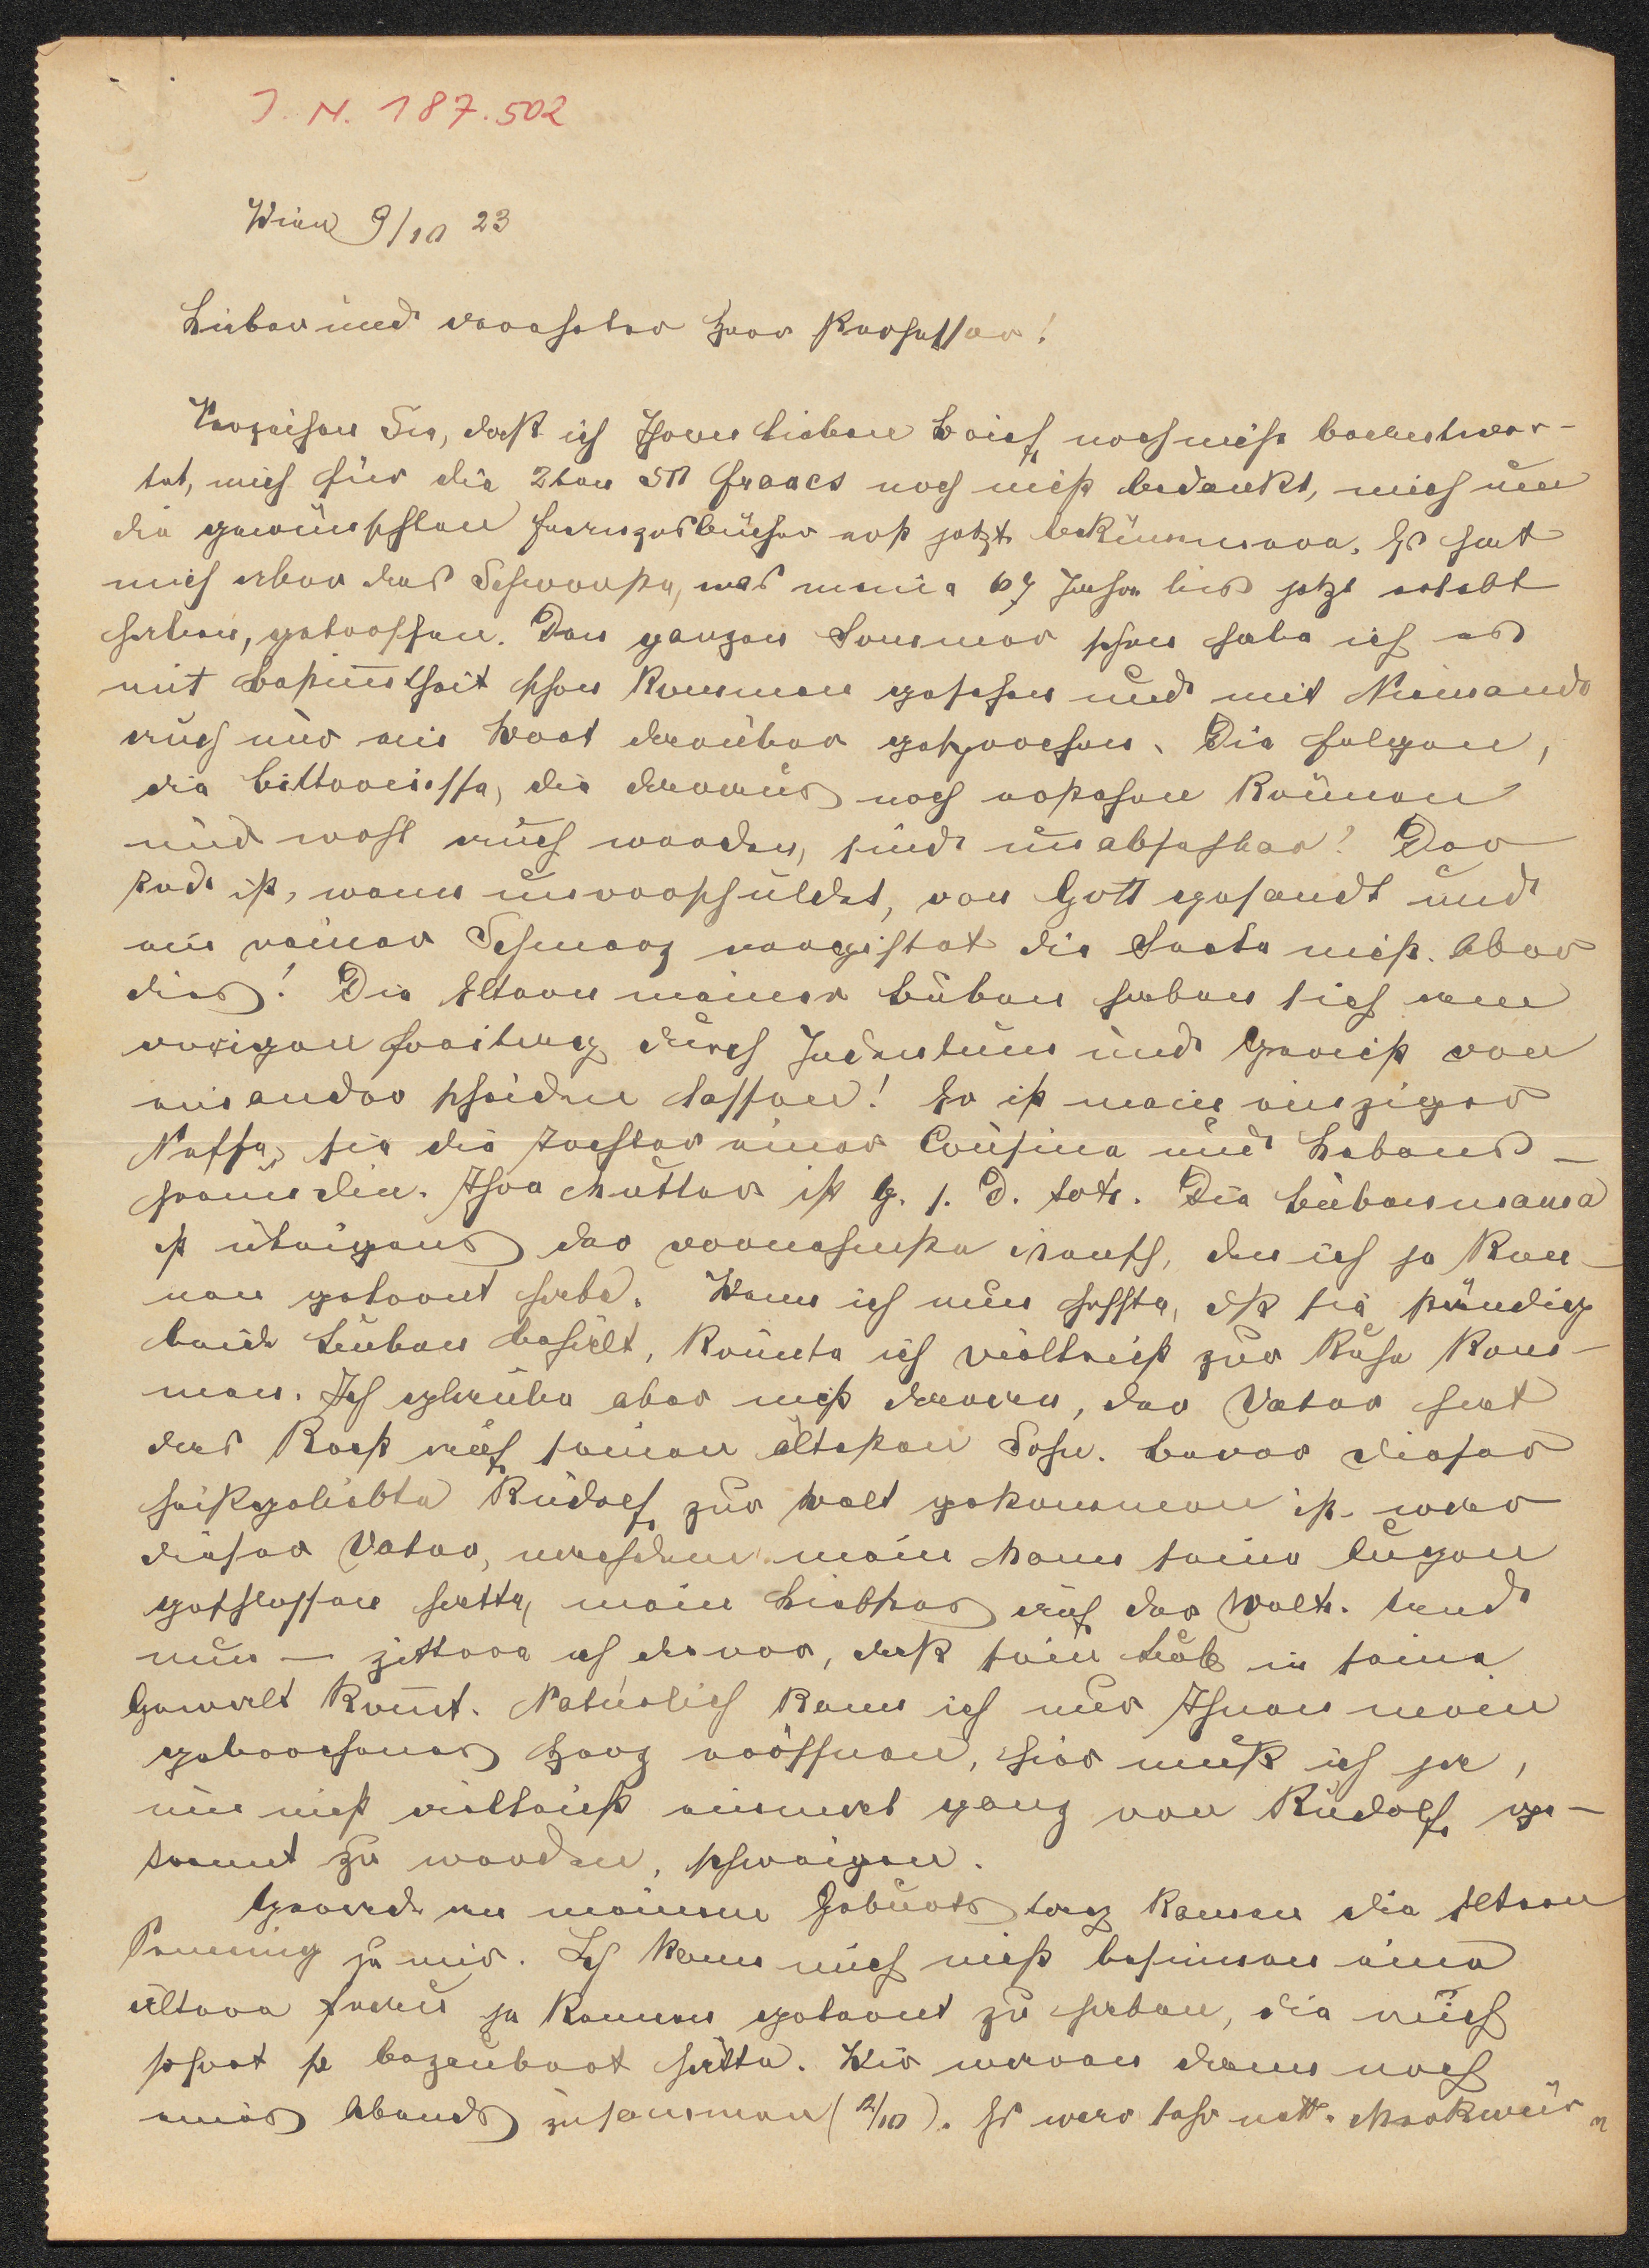 I. N. 187.502
Wien 9/10 23
Lieber und verehrter Herr Professor!
Verzeihen Sie, daß ich Ihren lieben Brief noch nicht beantwor-
tet, mich für die 2ten 50 francs noch nicht bedankt, mich um
die gewünschten bücher erst jetzt bekümmere. Es hat
mich aber das Schwerste, was meine 67 Jahre bis jetzt erlebt
haben, getroffen. Den ganzen Sommer schon habe ich es
mit Bestim̅theit schon kommen gesehen und mit Niemand
auch nur ein Wort darüber gesprochen. Die Folgen,
die Bitternisse, die daraus noch erstehen können
und wohl auch werden, sind unabsehbar! Der
Tod ist, wenn unverschuldet, von Gott gesandt und
ein reiner Schmerz vergiftet die Seele nicht. Aber
dies! Die Eltern meiner Buben haben sich am
vorigen Freitag durch Judentum und Gericht von
einander scheiden lassen! Er ist mein einziger
Neffe, sie die Tochter einer Cousine und Lebens-
freundin. Ihre Mutter ist G. s. D. tot. Die Bubenmama
ist übrigens der vornehmste Mensch, den ich je ken-
nen gelernt habe. Wenn ich nun hoffte, dß sie ständig
beide Buben behielt, könnte ich vielleicht zur Ruhe kom-
men. Ich glaube aber nicht daran, der Vater hat
das Recht auf seinen ältesten Sohn. Bevor dieser
heißgeliebte Rudolf zur Welt gekommen ist war
dieser Vater, nachdem mein Mann seine Augen
geschlossen hatte, mein Liebstes auf der Welt. Und
nun — zittere ich davor, daß sein Bub in seine
Gewalt kom̅t. Natürlich kann ich nur Ihnen mein
gebrochenes Herz eröffnen, hier muß ich ja,
um nicht vielleicht einmal ganz von Rudolf ge-
trennt zu werden, schweigen.
Gerade an meinem Geburtstag kamen die Eltern
zu mir. Ich kann mich nicht besinnen eine
ältere Frau je kennen gelernt zu haben, die mich
sofort so bezaubert hätte. Wir waren dann noch
eines Abends zusammen (2/10). Es war sehr nett. Merkwür-